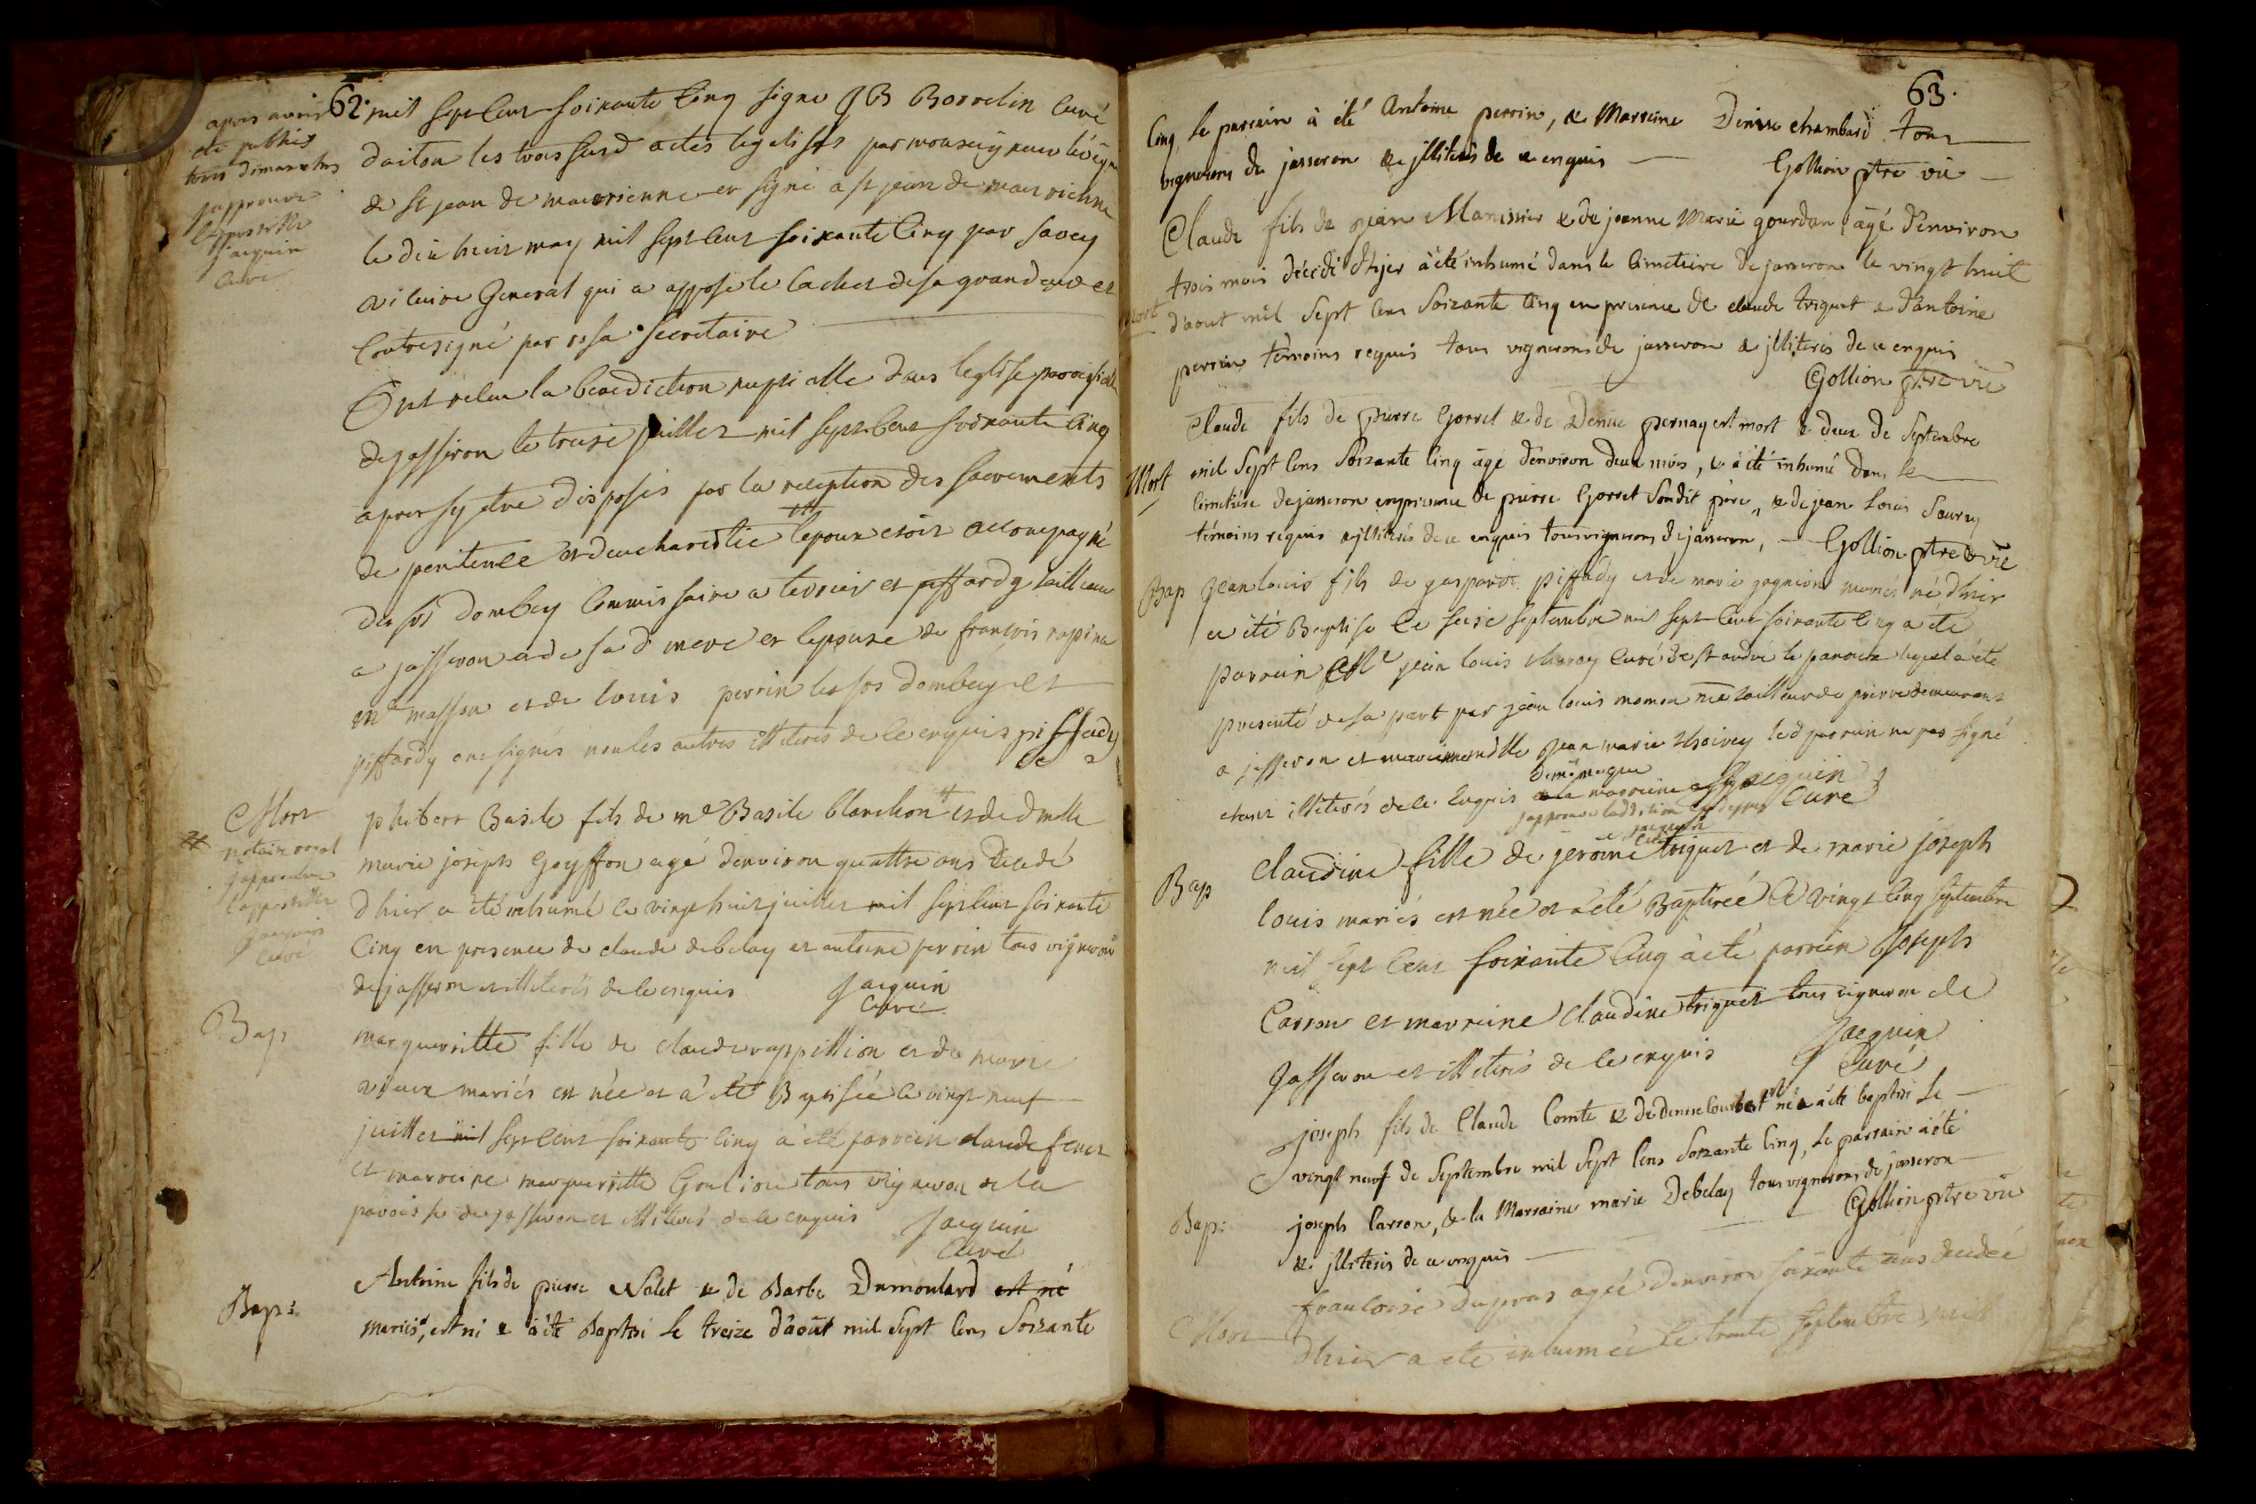 62.
apres avoir
ete publiés
trois dimanches
j'approuve
l'appostille
jacquin
curé
mil sept cent soixante cinq signe J B Borrelin curé
daiton les trois susd actes legalisés par monseigneur l'évêque
de st jean de maurienne et signé a st jean de maurienne
le dix huit may mil sept cent soixante cinq par favey
vicaire General qui a apposé le cachet de sa grandeur et
contresigné par sa secretaire
Ont recu la benediction nuptialle dans l'eglise paroissialle
de jasseron le treise juillet mil sept cent soixante cinq
apres s'y etre disposés par la reception des sacrements
de penitence et d'eucharistie l'epoux etoit accompagné
du sr dombey commissaire a terrier et piffardy tailleur
a jasseron et de sa d mere et l'epouse de françois rappina
me masson et de louis perrin les srs dombey et
piffardy ont signés non les autres illiterés de ce enquis piffardy
Mort
notaire royal
j'approuve
l'appostille
jacquin
curé
philbert Basile fils de me Basile blanchon et de dmlle
marie joseph Goyffon agé d'environ quattre ans decedé
d'hier a été inhumé le vingt huit juillet mil sept cent soixante
cinq en presence de claude debelay et antoine perrin tous vignerons
de jasseron et illiterés de ce enquis jacquin
curé
Bap
margueritte fille de claude rappillion et de marie
vieux mariés est née et a été Baptisée le vingt neuf
juillet mil sept cent soixante cinq a été parrein claude feuet
et marreine marguerite Goulion tous vigneron de la
paroisse de jasseron et illiterés de ce enquis jacquin
curé
Bap:
Antoine fils de pierre Nalet & de Barbe Dumoulard est né
mariés, est né & à été Baptisé le treize d'aoüt mil sept cens soixante
63.
cinq, le parrain à été Antoine perrin, & Marreine Denise chambard tous
vignerons de jasseron & jlliterés de ce enquis Gollion ptre vic
Mort
Claude fils de jean Manissier & de jeanne Marie gourdan, âgé d'environ
trois mois décédé d'hyer à été inhumé dans le cimetiere de jasseron le vingt huit
d'aout mil sept cens soixante cinq en presence de claude triquet & d'antoine
perrin temoins requis tous vignerons de jasseron & jlliterés de ce enquis
Gollion ptre vic
Mort
Claude fils de pierre Gorret & de Denise pernay est mort le deux de septembre
mil sept cens soixante cinq âgé d'environ deux mois, & à été inhumé dans le
cimetiére de jasseron en presence de pierre Gorret sondit pére, & de jean louis
témoins requis & jlliterés de ce enquis tous vignerons de jasseron, Gollion ptre & vic
Bap
jean louis fils de gaspard piffady et de marie gagnion mariés né d'hier
a été Baptisé le seise septembre mil sept cent soixante cinq a été
parrein Mr jean louis curé de st andré le panoux lequel a été
presenté de sa part par jean louis momon me tailleur de pierre demeurant
a jasseron et marreine dlle jean marie led parrein n'a pas signé
etant illiterés de ce enquis de même que la marreine jacquin
j'approuve l'addition cy dessus curé
jacquin
curé
Bap
claudine fille de jerome triquet et de marie joseph
louis mariés est née et a été Baptisée le vingt cinq septembre
mil sept cent soixante cinq à été parrein joseph
Carron et marreine claudine triquet tous vigneron de
jasseron et illiterés de ce enquis jacquin
curé
Bap:
joseph fils de Claude Comte & de denise est né & à été baptisé le
vingt neuf de septembre mil sept cens soixante cinq, le parrain à été
joseph Carron, & la Marraine marie Debelay tous vignerons de jasseron
& jlliterés de ce enquis Gollion ptre vic
Mort
francoise dupras agée d'environ soixante ans decedée
d'hier a été inhumée le trente septembre mil